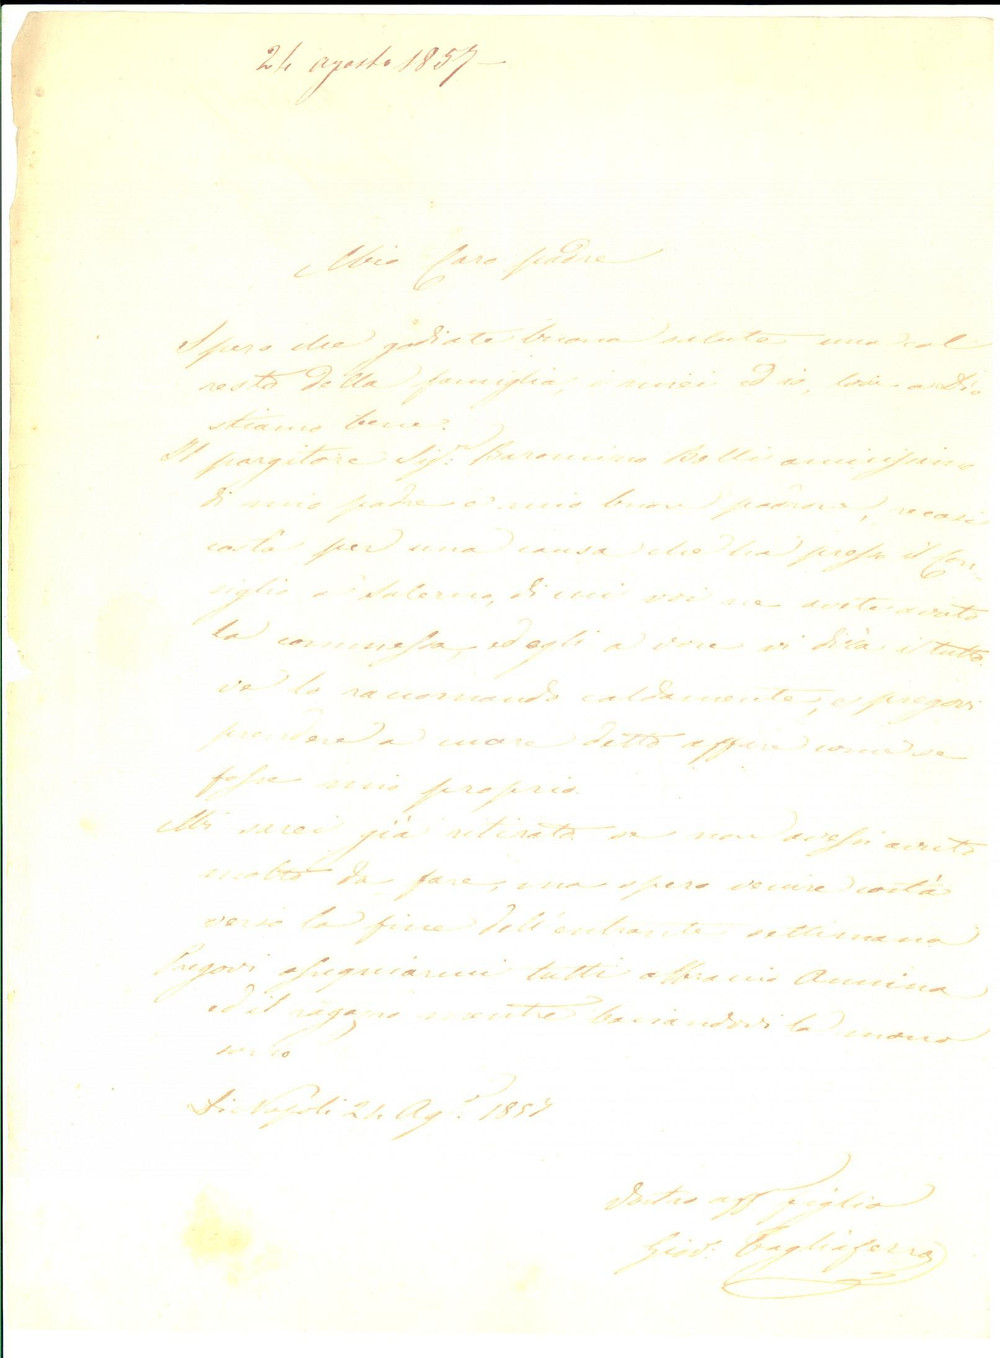 24 agosto 1857
Mio Caro padre
Spero che godiate buona salute uno col
resto della famiglia, i miei ed io, lode a Dio
stiamo bene.
Il porgitore Sig.r Baroncino Belli amicissimo
di mio padre e mio buon padrone, recasi
costà per una causa che ha presso il Con-
siglio di Salerno, di cui voi ne avete avuto
la commessa, ed egli a voce vi dirà il tutto
ve lo raccomando caldamente, e pregovi
prendere a cuore detto affare come se
fosse mio proprio.
Mi sarei già ritirato se non avessi avuto
molto da fare, ma spero venire costà
verso la fine dell'entrante settimana
Pregovi ossequiarmi tutti abbraccio Annina
ed il ragazzo mentre baciandovi la mano
sono
Di Napoli 24 Ag.to 1857
Vostro aff figlio
Giov. Tagliaferro